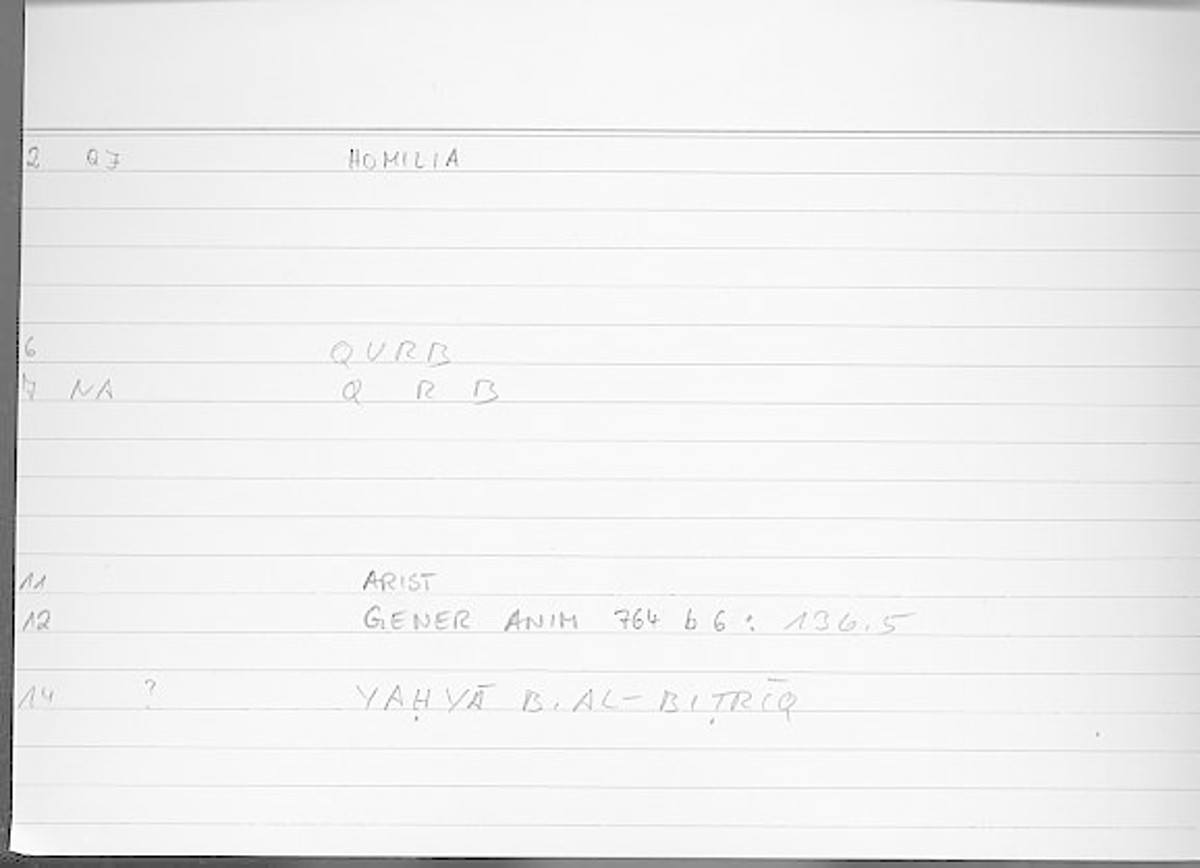 2 QJ HOMILIA
6 QURB
7 NA Q R B
11 ARIST
12 GENER ANIM 764 b 6 : 136.5
14 ? YAḤYĀ B. AL-BIṬRĪQ